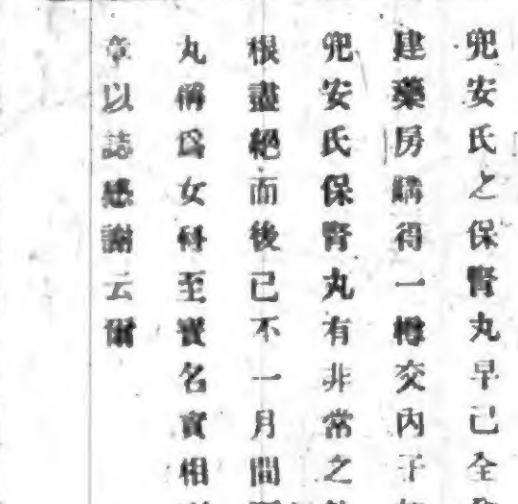 兜安氏之保腎丸早己全
建藥房購得一樽交內子
兜安氏保腎丸有非常之
根盡絕而後已不一月間
丸稱爲女科至寶名實相
章以誌感謝云爾